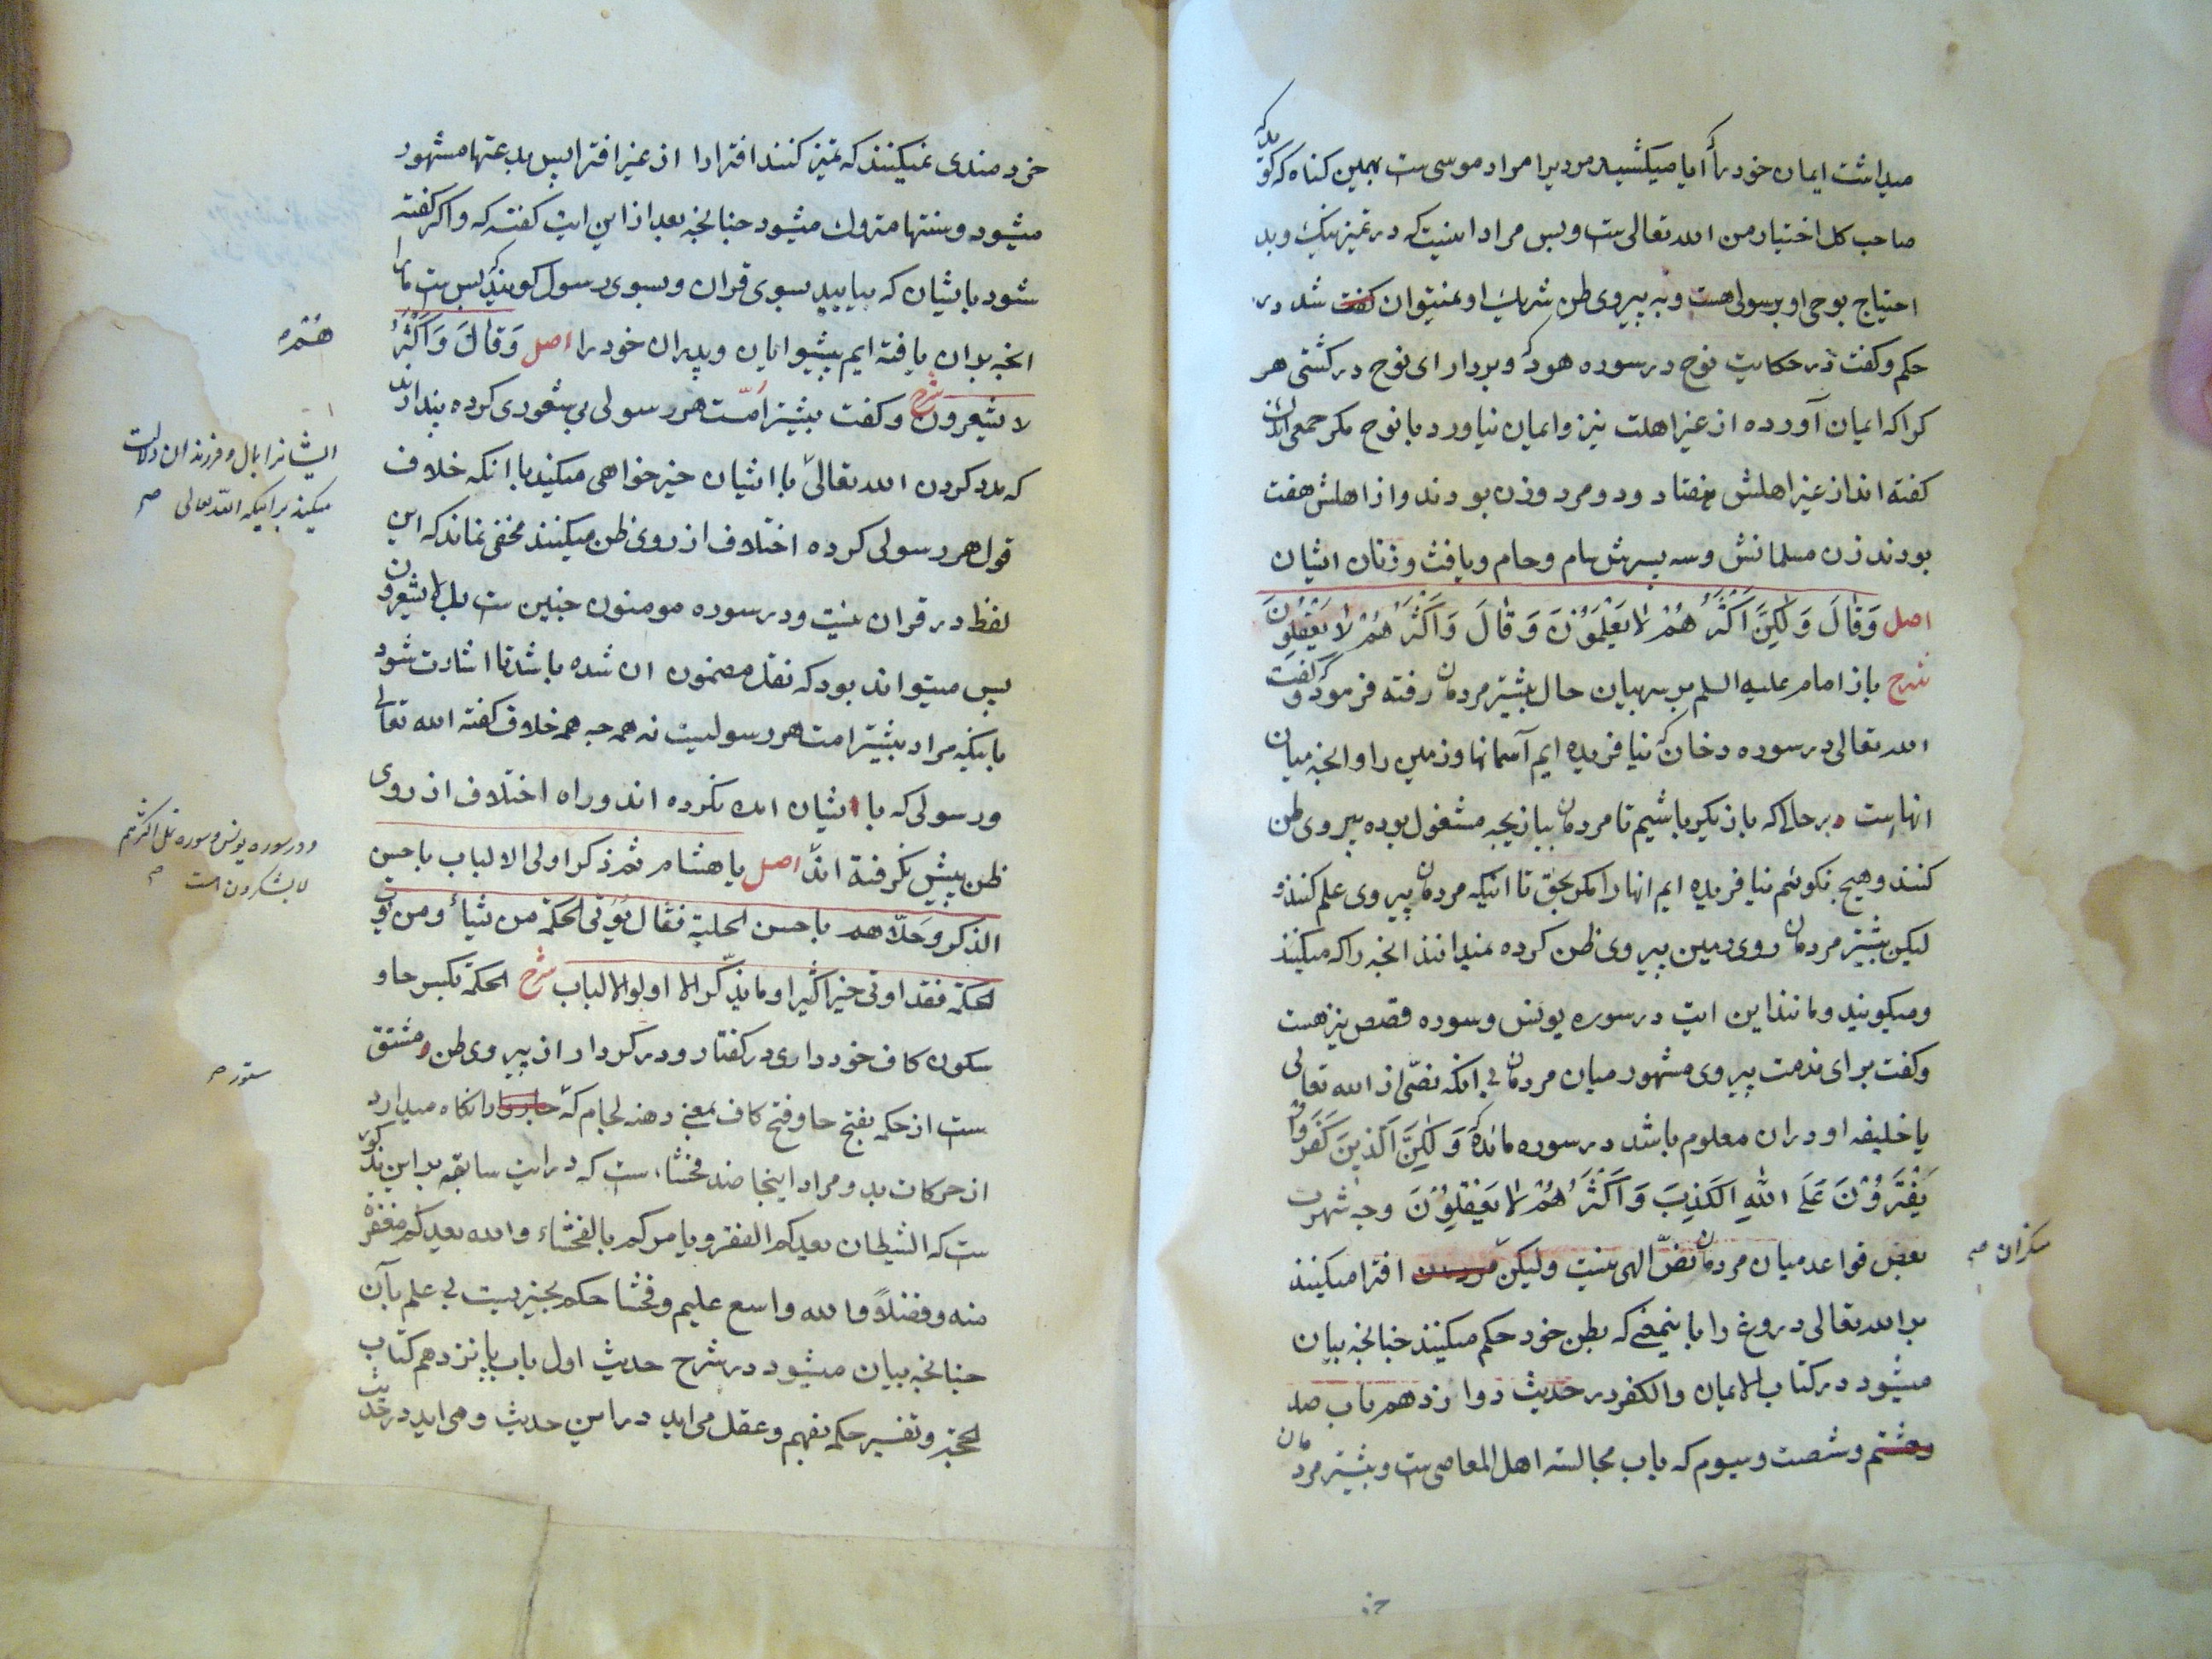 میداشت ایمان خود را آیا میکشید مردیرا مراد موسی ست بهمین کناه که کوید که
صاحب کل اختیار من الله تعالی ست وبس مراد اینست که در تمیز نیک وبد
احتیاج بوحی او برسولی هست وبه پیروی ظن شریک او نمیتوان کفت شد در
حکم وکفت در حکایت نوح در سوره هود که وبردار ای نوح در کشتی هر
کرا که ایمان آورده از غیر اهلت نیز وایمان نیاورد با نوح مکر جمعی اندک
کفته اند از غیر اهلش هفتاد ودو مرد وزن بودند واز اهلش هفت
بودند زن مسلمانش وسه پسرش سام وحام ویافث وزنان ایشان
اصل وَقَالَ وَلٰكِنَّ اَكْثَرَهُمْ لَا يَعْلَمُوْنَ وَقَالَ وَاَكْثَرُهُمْ لَا يَعْقِلُوْنَ
شرح باز امام علیه السلم بر سر بیان حال بیشتر مردمان رفته فرمود که وکفت
الله تعالی در سوره دخان که نیافریده ایم آسمانها وزمین را وانچه میان
انهاست در حالی که بازیکر باشیم تا مردمان ببازیچه مشغول بوده پیروی ظن
کنند وهیچ نکوئیم نیافریده ایم انها را مکر بحق تا اینکه مردمان پیروی علم کنند و
لیکن بیشتر مردمان روی زمین پیروی ظن کرده نمیدانند انچه را که میکنند
ومیکویند ومانند این ایت در سوره یونس وسوره قصص نیز هست
وکفت برای مذمت پیروی مشهور میان مردمان بی انکه نصّی از الله تعالی
یا خلیفه او دران معلوم باشد در سوره مائده که وَلٰكِنَّ الَّذِيْنَ كَفَرُوْا
يَفْتَرُوْنَ عَلَى اللّٰهِ الْكَذِبَ وَاَكْثَرُهُمْ لَا يَعْقِلُوْنَ وجه شهرت
بعض قواعد میان مردمان نصّ الهی نیست ولیکن مردمان افترا میکنند
منکران صح
بر الله تعالی دروغ را باینمعنی که بظن خود حکم میکنند چنانچه بیان
میشود در کتاب الایمان والکفر در حدیث دوازدهم باب صد
وهشتم وشصت وسیوم که باب مجالسة اهل المعاصی ست وبیشتر مردمان
خردمندی نمیکنند که تمیز کنند افترا را از غیر افترا پس بدعتها مشهور
میشود وسنتها متروک میشود چنانچه بعد از این ایت کفته که واکر کفته
شود بایشان که بیایید بسوی قران وبسوی رسول کویند که بس ست ما را
انچه بران یافته ایم پیشوایان وپدران خود را اصل وَقَالَ وَاَكْثَرُ
هُمْ
لا یشعرون شرح وکفت بیشتر امّت هر رسولی بی شعوری کرده پندارند
ایشانرا بمال وفرزندان دلالت
میکند برانیکه الله تعالی صح
که مدد کردن الله تعالی با ایشان خیر خواهی میکند با انکه خلاف
قول هر رسولی کرده اختلاف از روی ظن میکنند مخفی نماند که این
لفظ در قران نیست ودر سوره مومنون چنین ست بل لا یشعرون
پس میتواند بود که نقل مضمون ان شده باشد تا اشارت شود
باینکه مراد بیشتر امت هر رسولیست نه همه چه همه خلاف کفته الله تعالی
ورسولی که با ایشان امده نکرده اند وراه اختلاف از روی
ودر سوره یونس وسوره نمل اکثرهم
لا یشکرون است صح
ظن پیش نکرفته اند اصل یا هشام ثم ذکر اولی الالباب باحسن
الذکر وحلّاهم باحسن الحلیة فقال یؤتی الحکمة من یشاء ومن یؤت
الحکمة فقد اوتی خیرا کثیرا وما یذّکر الا اولو الالباب شرح الحکمة بکسر حا و
سکون کاف خود داری در کفتار ودر کردار از پیروی ظن ومشتق
ست از حکمه بفتح حا وفتح کاف بمعنی دهنه لجام که جاروا را نکاه میدارد
ستور صح
از حرکات بد ومراد اینجا ضد فحشاء ست که در ایت سابقه بر این مذکور
ست که الشیطان یعدکم الفقر ویامرکم بالفحشاء والله یعدکم مغفرة
منه وفضلاً والله واسع علیم وفحشا حکم بچیزیست بی علم بآن
چنانچه بیان میشود در شرح حدیث اول باب پانزدهم کتاب
الحجة وتفسیر حکمه بفهم وعقل می اید در این حدیث ومی اید در حدیث